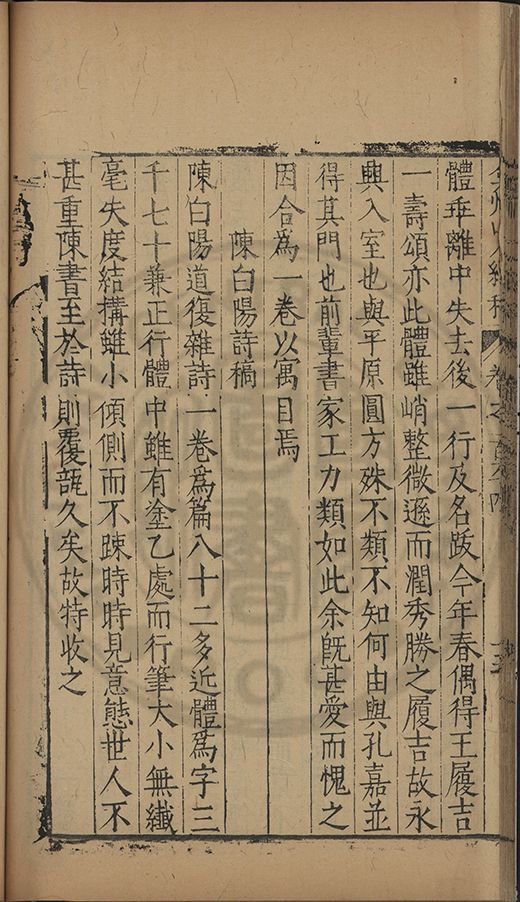 體乖離中失去後一行及名跋今年春偶得王履吉
一壽頌亦此體雖峭整微遜而潤秀勝之履吉故永
興入室也與平原圓方殊不類不知何由與孔嘉並
得其門也前輩書家工力類如此余既甚愛而愧之
因合為一卷以寓目焉
陳白陽詩稿
陳白陽道復雜詩一卷為篇八十二多近體為字三
千七十兼正行體中雖有塗乙處而行筆大小無纖
毫失度結搆雖小傾側而不踈時時見意態世人不
甚重陳書至於詩則覆瓿久矣故特收之